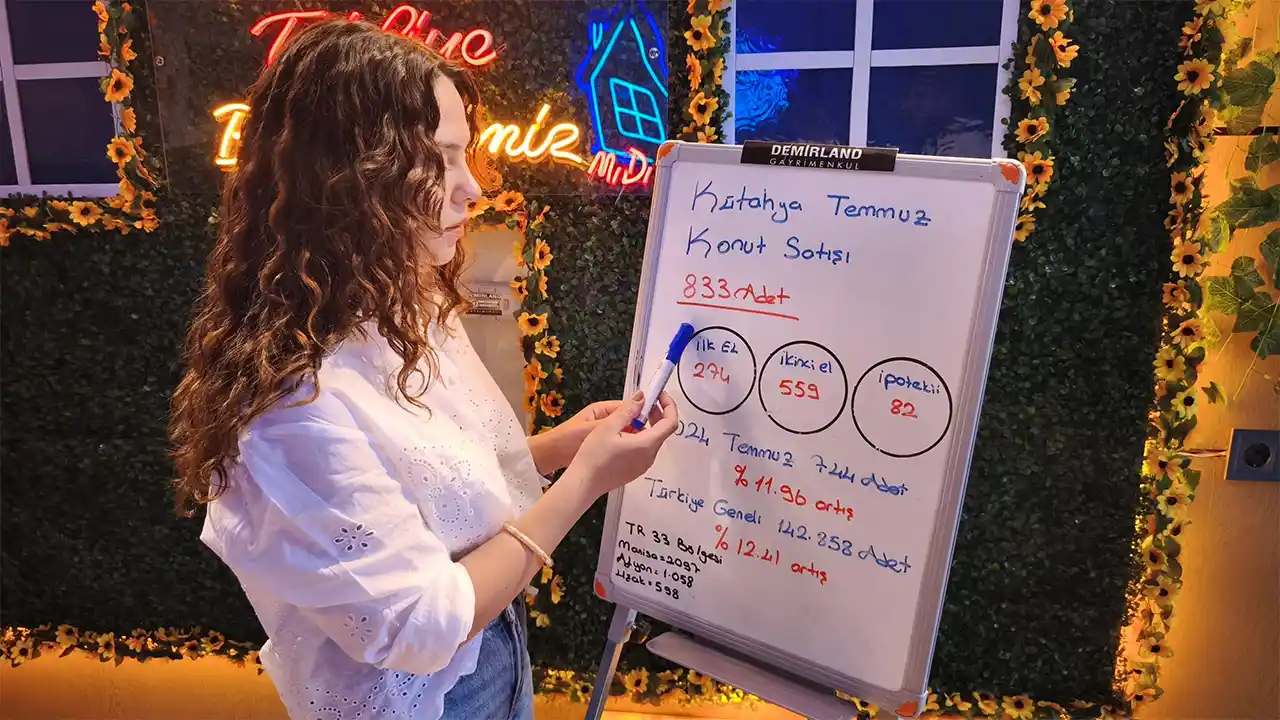 MiDi
DEMİRLAND
GAYRİMENKUL
Kütahya Temmuz
Konut Satışı
833 Adet
ilk EL
274
ikinci el
559
ipotekli
82
024 Temmuz 744 Adet
% 11.96 artış
Türkiye Geneli 142.858 Adet
% 12.41 artış
TR 33 Bölgesi
Manisa = 2097
Afyon = 1.058
Uşak = 598
DEMİRLAND